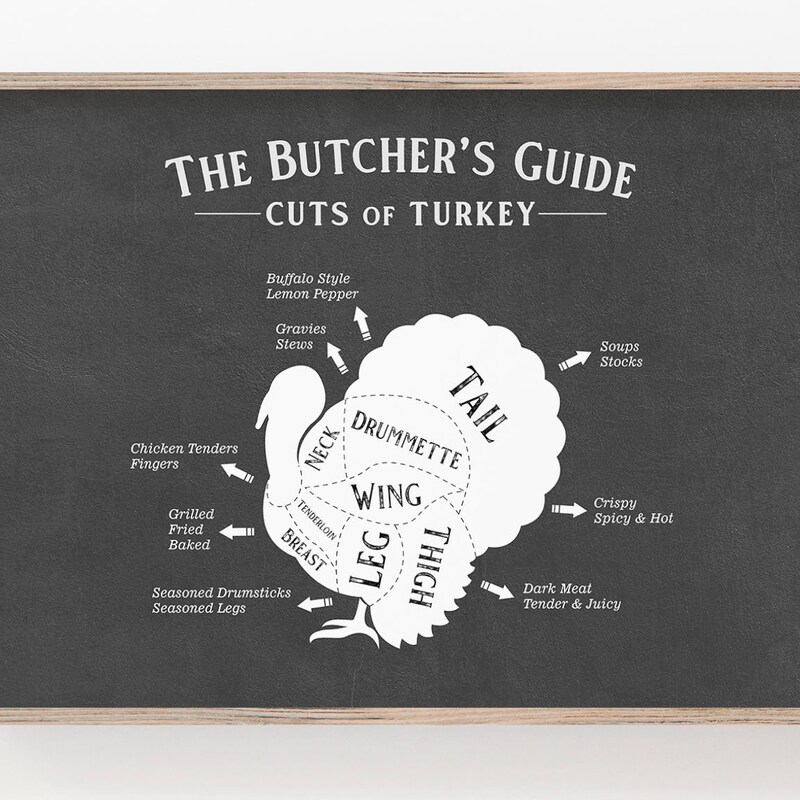 THE BUTCHER'S GUIDE
CUTS OF TURKEY
Buffalo Style
Lemon Pepper
Gravies
Stews
Soups
Stocks
TAIL
NECK
DRUMMETTE
Chicken Tenders
Fingers
WING
Crispy
Spicy & Hot
Grilled
Fried
Baked
TENDERLOIN
BREAST
LEG
THIGH
Seasoned Drumsticks
Seasoned Legs
Dark Meat
Tender & Juicy